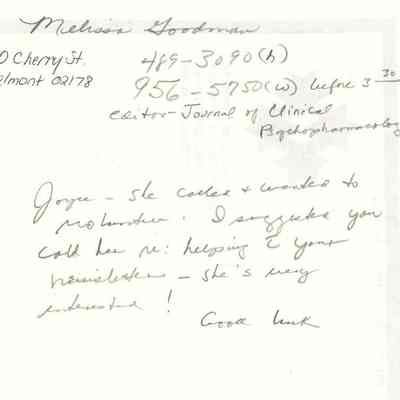 Melissa Goodman
0 Cherry St.
elmont 02178
489-3090 (h)
956-5750 (w) before 3 30
editor - Journal of Clinical
Psychopharmacology
Joyce - she called & wanted to
volunteer. I suggested you
call her re: helping c̄ your
newsletter - she's very
interested!
Good luck